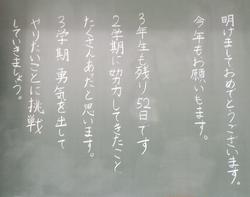 明けましておめでとうございます。
今年もお願いします。
3年生も残り52日です
2学期に努力してきたこと
たくさんあったと思います。
3学期 勇気を出して
やりたいことに挑戦
していきましょう。